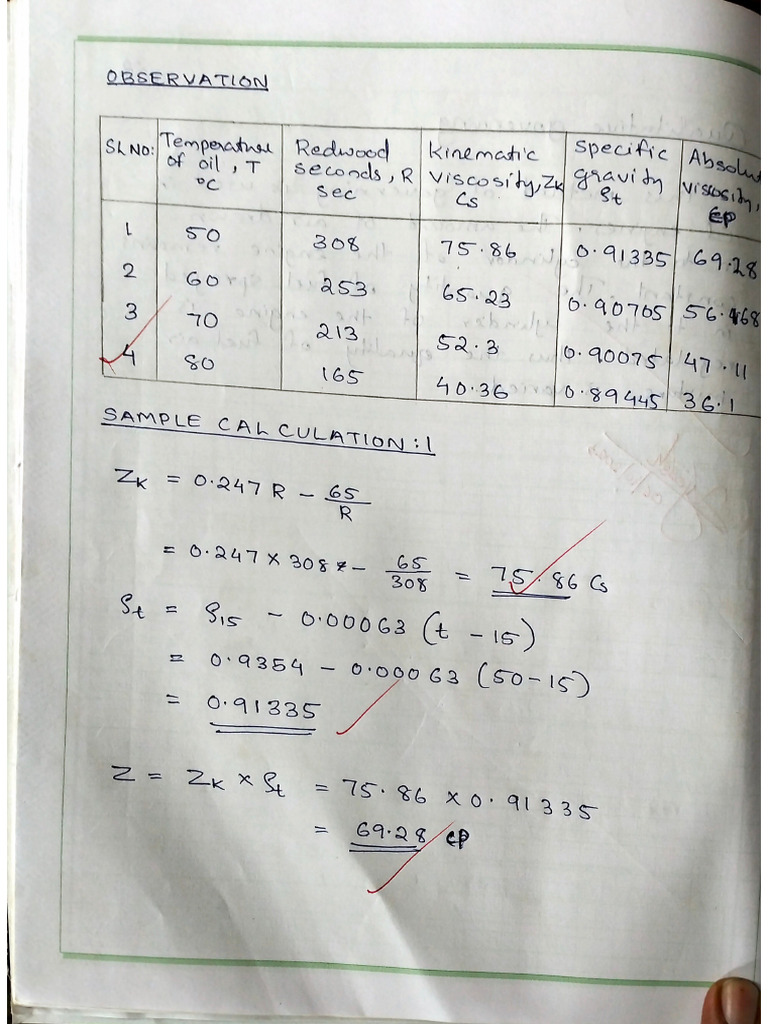 OBSERVATION
SL NO: Temperature of oil, T °C Redwood seconds, R sec Kinematic viscosity, Zk Cs Specific gravity ρt Absolut viscosity, CP
1 50 308 75.86 0.91335 69.28
2 60 253 65.23 0.90705
3 70 213 52.3 0.90075 47.11
4 80 165 40.36 0.89445 36.1
SAMPLE CALCULATION:1
ZK = 0.247 R - 65/R
= 0.247 × 308 - 65/308 = 75.86 Cs
ρt = ρ15 - 0.00063 (t - 15)
= 0.9354 - 0.00063 (50-15)
= 0.91335
Z = ZK × ρt = 75.86 × 0.91335
= 69.28 CP